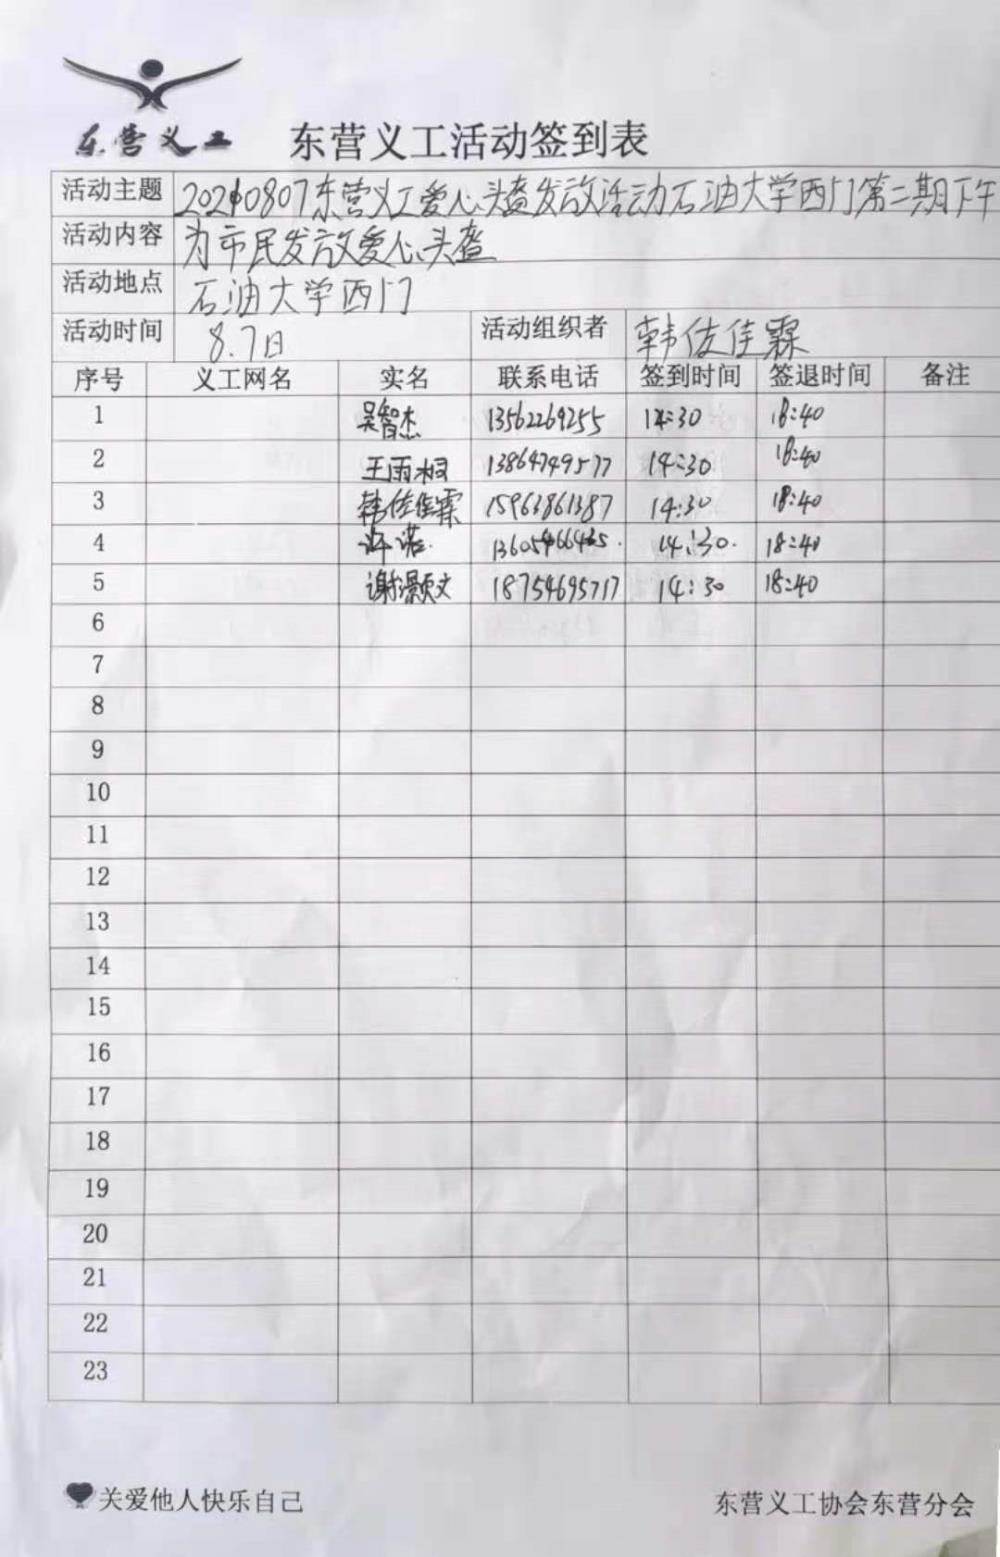 东营义工 东营义工活动签到表
活动主题 20210807东营义工爱心头盔发放活动石油大学西门第二期下午
活动内容 为市民发放爱心头盔
活动地点 石油大学西门
活动时间 8.7日 活动组织者 韩佐佳霖
序号 义工网名 实名 联系电话 签到时间 签退时间 备注
1 吴智杰 13562269255 14:30 18:40
2 王雨桐 13864749577 14:30 18:40
3 韩佐佳霖 15963861387 14:30 18:40
4 许诺 14:30 18:40
5 谢灏文 18754695717 14:30 18:40
6
7
8
9
10
11
12
13
14
15
16
17
18
19
20
21
22
23
关爱他人快乐自己 东营义工协会东营分会